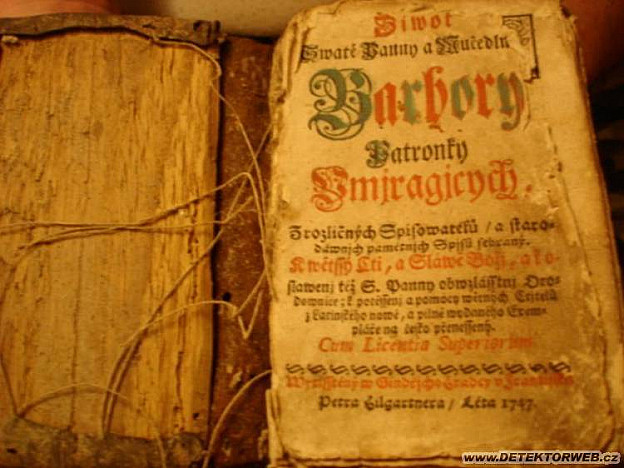 Žiwot
Swaté Panny a Mučedln
Barbory
Patronky
Vmjragjcych.
Z rozličných Spisowatelů / a staro-
dáwnjch pamětných Spisů sebraný.
K wětssý Cti, a Sláwě Božj, a k o-
slawenj též S. Panny obwzlásstnj Oro-
downice; k potěssenj a pomocy wěrných Ctitelů
z Latinského nowě, a pilně wydaného Exem-
pláře na česko přenessený.
Cum Licentia Superiorum.
Wytisstěný w Gindřichowě Hradcy v Frantisska
Petra Hilgartnera / Léta 1747.
www.DETEKTORWEB.cz